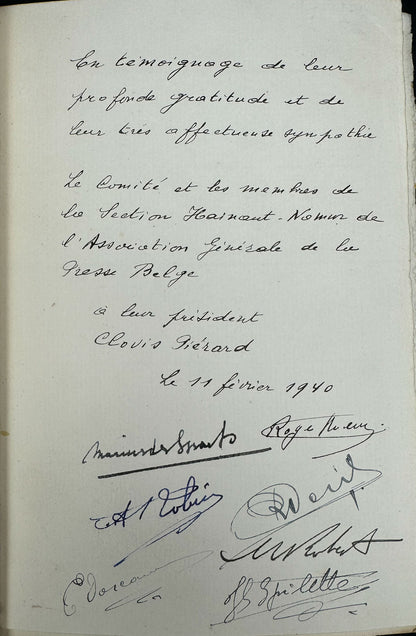 En témoignage de leur
profonde gratitude et de
leur très affectueuse sympathie
Le Comité et les membres de
la Section Hainaut-Namur de
l'Association Générale de la
Presse Belge
à leur président
Clovis Piérard
Le 11 février 1940
Roger
Robert